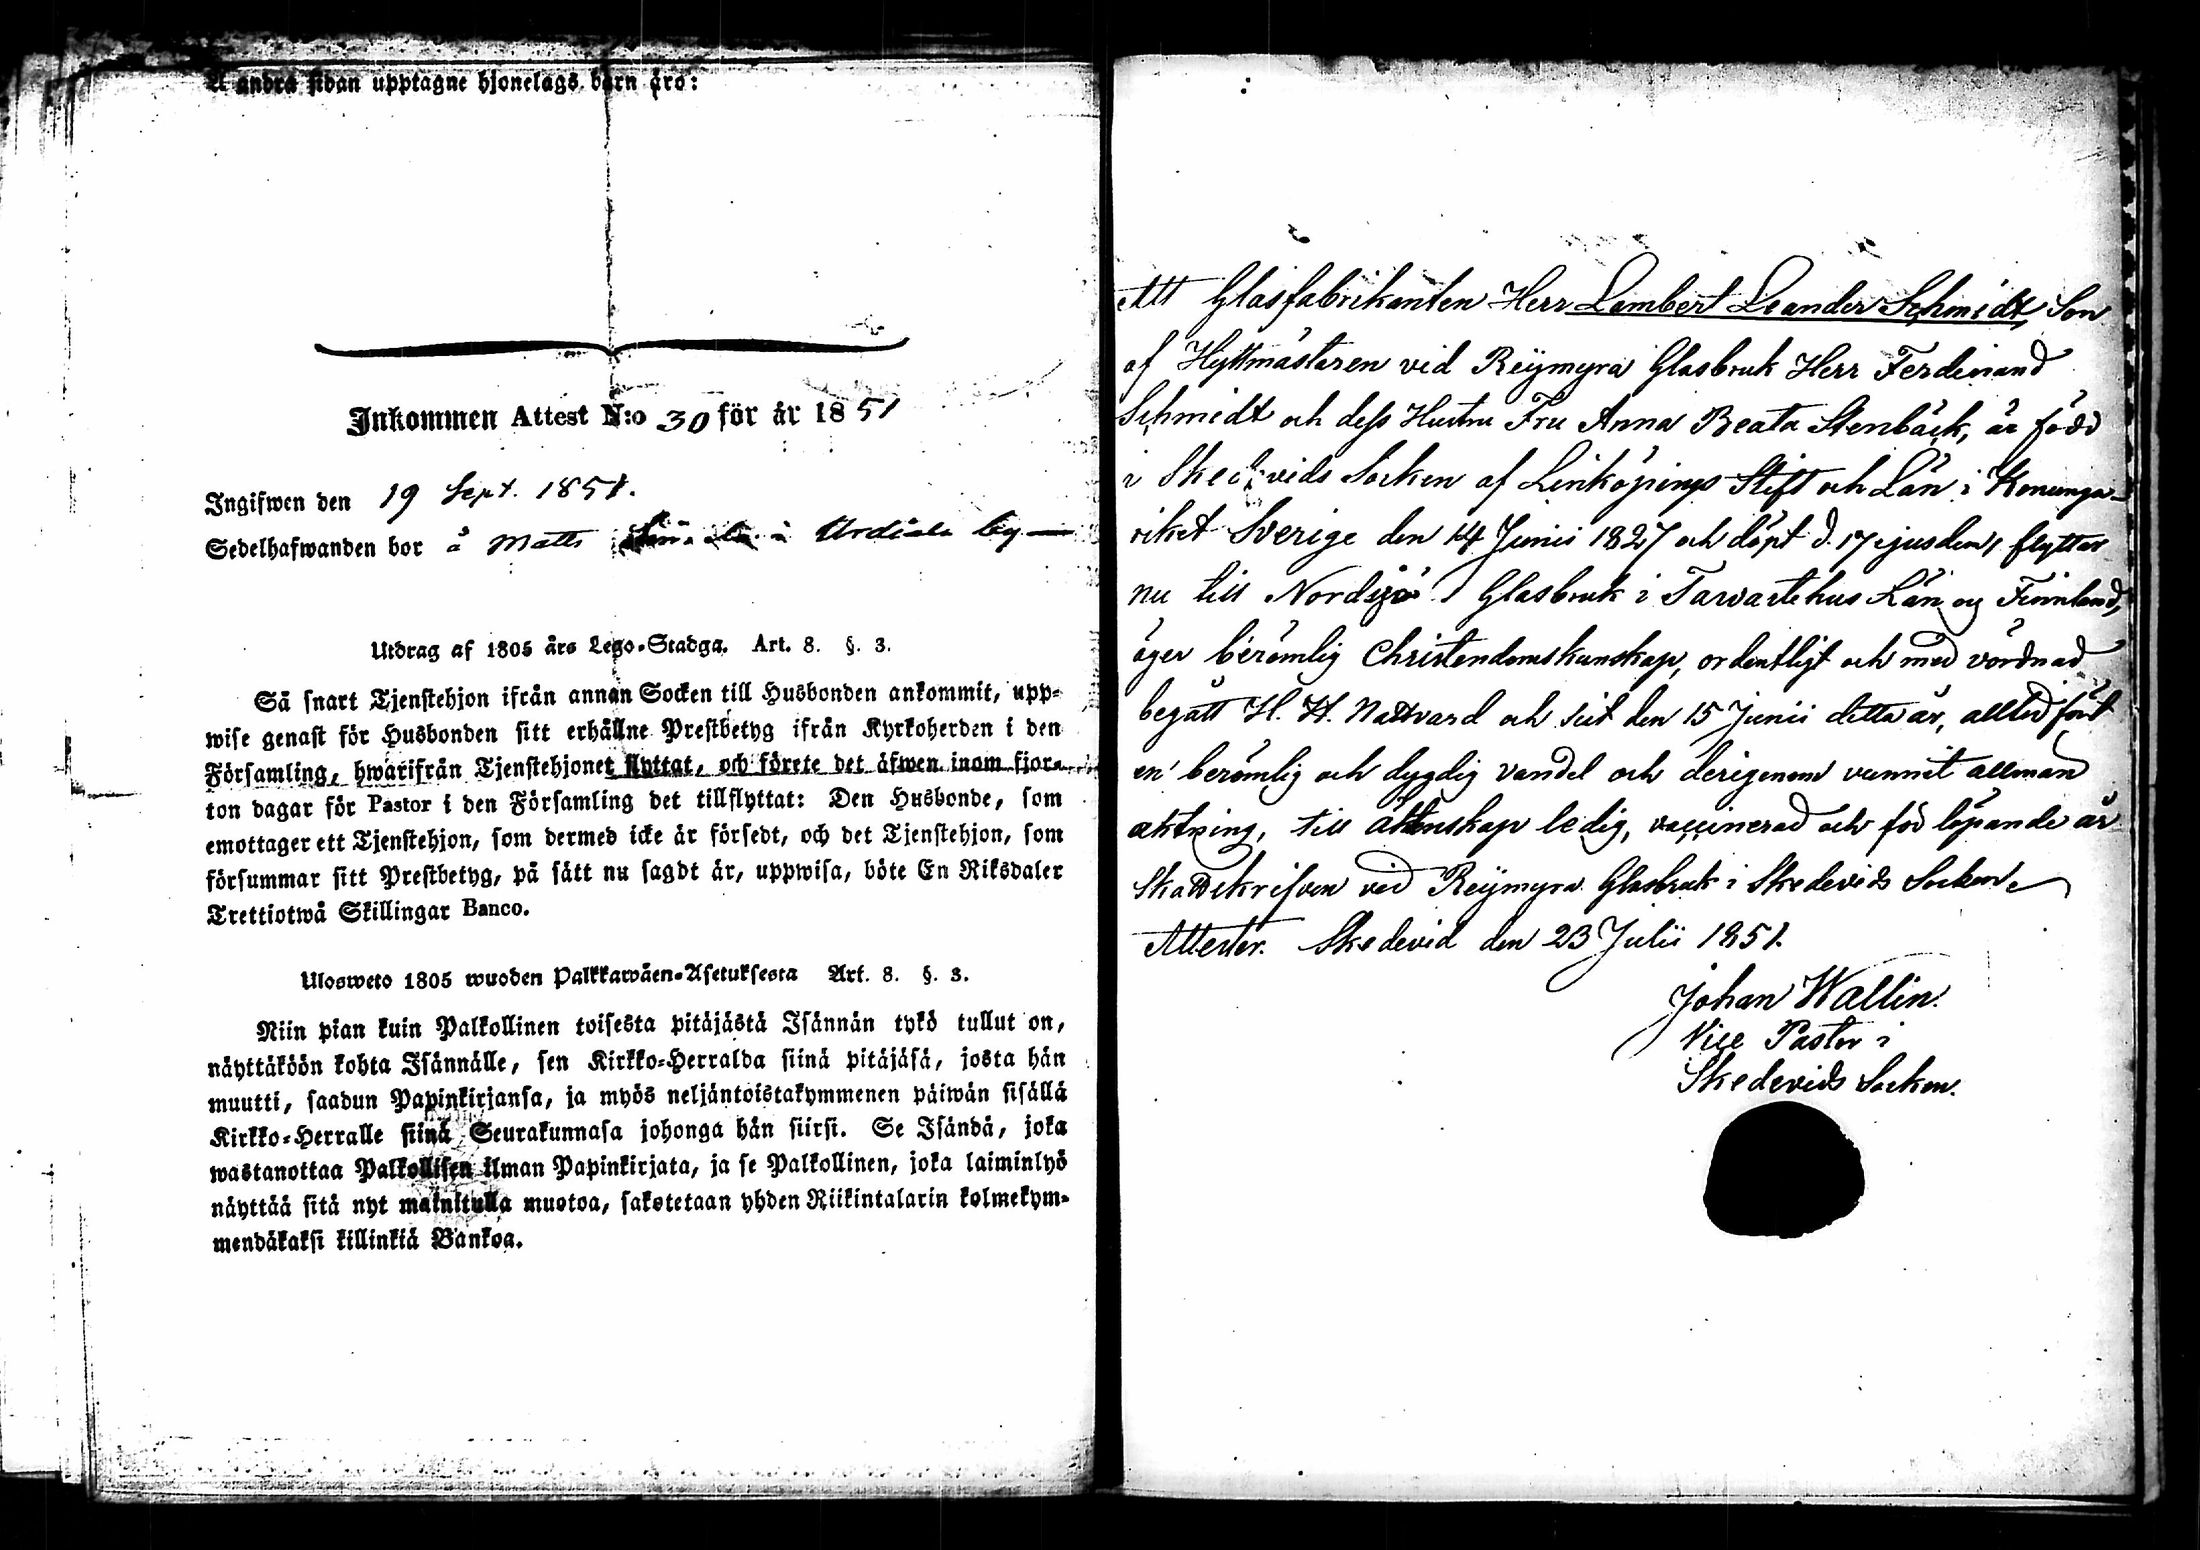 Å andra sidan upptagne hjonelags barn äro:
Inkommen Attest N:o 30 för år 1851
Ingifwen den 19 Sept. 1851.
Sedelhafwanden bor å Matts i Urdiala by
Utdrag af 1805 års Lego-Stadga. Art. 8. §. 3.
Så snart Tjenstehjon ifrån annan Socken till Husbonden ankommit, upp-
wise genast för Husbonden sitt erhållne Prestbetyg ifrån Kyrkoherden i den
Församling, hwarifrån Tjenstehjonet flyttat, och förete det äfwen inom fjor-
ton dagar för Pastor i den Församling det tillflyttat: Den Husbonde, som
emottager ett Tjenstehjon, som dermed icke är försedt, och det Tjenstehjon, som
försummar sitt Prestbetyg, på sätt nu sagdt är, uppwisa, böte En Riksdaler
Trettiotwå Skillingar Banco.
Ulosweto 1805 wuoden Palkkawäen-Asetuksesta Art. 8. §. 3.
Niin pian kuin Palkollinen toisesta pitäjästä Isännän tykö tullut on,
näyttäköön kohta Isännälle, sen Kirkko-Herralda siinä pitäjäsä, josta hän
muutti, saadun Papinkirjansa, ja myös neljäntoistakymmenen päiwän sisällä
Kirkko-Herralle siinä Seurakunnasa johonga hän siirsi. Se Isändä, joka
wastanottaa Palkollisen ilman Papinkirjata, ja se Palkollinen, joka laiminlyö
näyttää sitä nyt mainitulla muotoa, sakotetaan yhden Riikintalarin kolmekym-
mendäkaksi killinkiä Bankoa.
Att Glasfabrikanten Herr Lambert Leander Schmidt, Son
af Hyttmästaren vid Reijmyra Glasbruk Herr Ferdinand
Schmidt och dess Hustru Fru Anna Beata Stenbäck, är född
i Skedevids Socken af Linköpings Stift och Län i Konunga-
riket Sverige den 14 Junii 1827 och döpt d. 17 ejusdem, flyttar
nu till Nordsjö Glasbruk i Tavastehus Län og Finnland,
äger berömlig Christendomskunskap, ordentligt och med vördnad
begått H. H. Nattvard och sist den 15 Junii detta år, alltid fört
en berömlig och dygdig vandel och derigenom vunnit allmän
aktning, till äktenskap ledig, vaccinerad och för löpande år
skattskrifven vid Reijmyra Glasbruk i Skedevids Socken.
Attester. Skedevid den 23 Julii 1851.
Johan Wallin.
Vice Pastor i
Skedevids Socken.